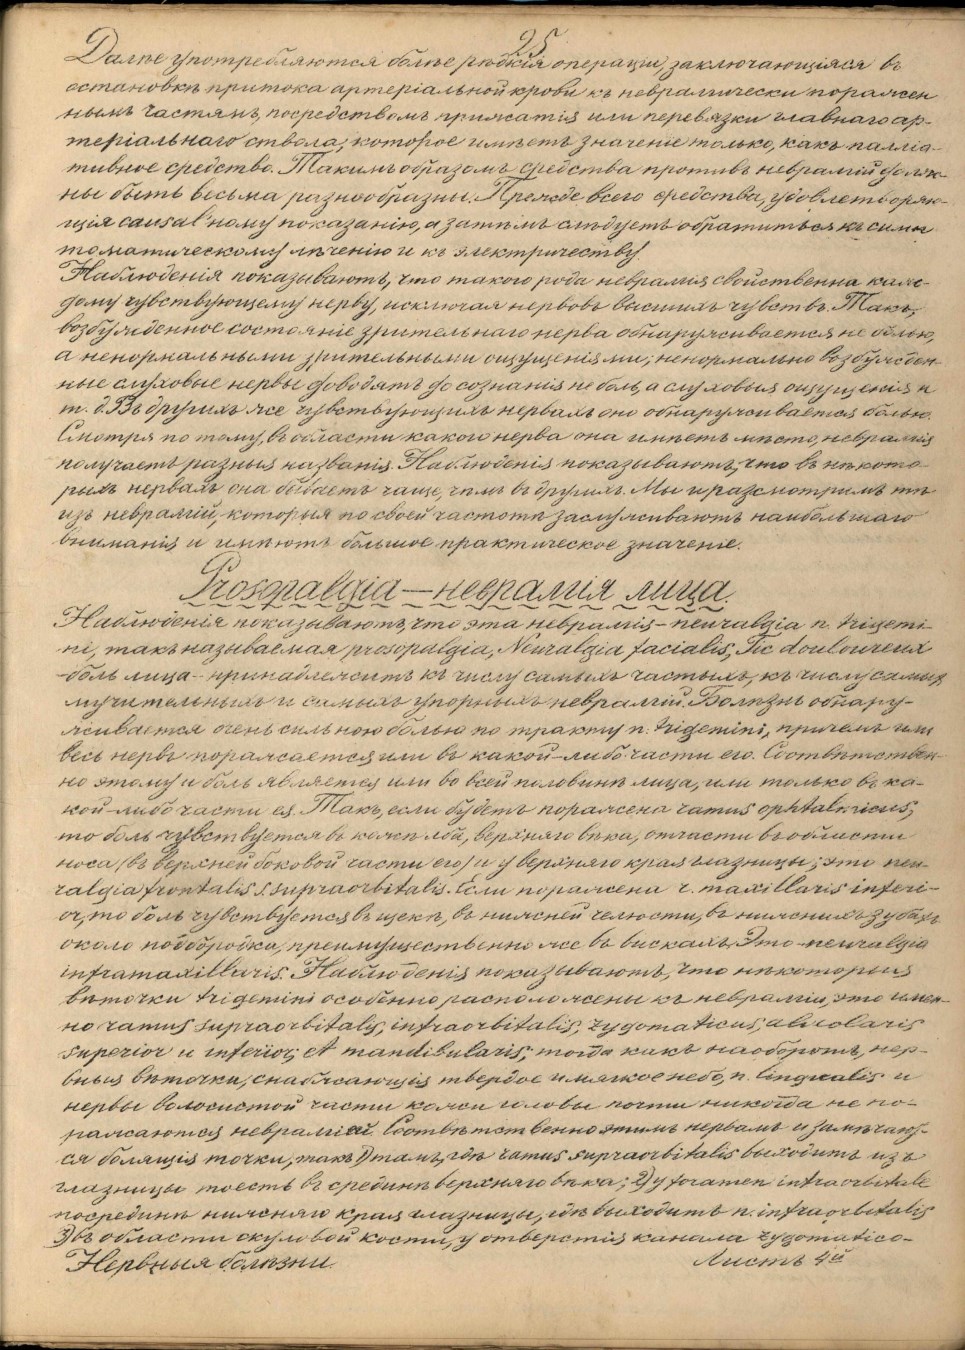 25
Далѣе употребляются болѣе рѣдкія операціи, заключающіяся въ
остановкѣ притока артеріальной крови къ невралгически поражен
нымъ частямъ, посредствомъ прижатія или перевязки главнаго ар-
теріальнаго ствола, которое имѣетъ значеніе только, какъ палліа-
тивное средство. Такимъ образомъ средства противъ невралгій долж-
ны быть весьма разнообразны. Прежде всего средства, удовлетворяю-
щія causal'ному показанію, а затѣмъ слѣдуетъ обратиться къ симп
томатическому лѣченію и къ электричеству.
Наблюденія показываютъ, что такого рода невралгія свойственна каж-
дому чувствующему нерву, исключая нервовъ высшихъ чувствъ. Такъ,
возбужденное состояніе зрительнаго нерва обнаруживается не болью,
а ненормальными зрительными ощущеніями; ненормально возбужден-
ные слуховые нервы доводятъ до сознанія не боль, а слуховыя ощущенія и
т. д. Въ другихъ же чувствующихъ нервахъ оно обнаруживается болью.
Смотря по тому, въ области какого нерва она имѣетъ мѣсто, невралгія
получаетъ разныя названія. Наблюденія показываютъ, что въ нѣкото-
рыхъ нервахъ она бываетъ чаще, чѣмъ въ другихъ. Мы и разсмотримъ тѣ
изъ невралгій, которыя по своей частотѣ заслуживаютъ наибольшаго
вниманія и имѣютъ большое практическое значеніе.
Prosopalgia — невралгія лица.
Наблюденія показываютъ, что эта невралгія - neuralgia n. trigemi-
ni, такъ называемая prosopalgia, Neuralgia facialis, Tic douloureux
- боль лица - принадлежитъ къ числу самыхъ частыхъ, къ числу самыхъ
мучительныхъ и самыхъ упорныхъ невралгій. Болѣзнь обнару-
живается очень сильною болью по тракту n. trigemini, причемъ или
весь нервъ поражается или въ какой-либо части его. Соотвѣтствен-
но этому и боль является или во всей половинѣ лица, или только въ ка-
кой-либо части ея. Такъ, если будетъ поражена ramus ophtalmicus,
то боль чувствуется въ кожѣ лба, верхняго вѣка, отчасти въ области
носа (въ верхней боковой части его) и у верхняго края глазницы; это neu-
ralgia frontalis s. supraorbitalis. Если поражена r. maxillaris inferi-
or, то боль чувствуется въ щекѣ, въ нижней челюсти, въ нижнихъ зубахъ
около подбородка, преимущественно же въ вискахъ. Это - neuralgia
inframaxillaris. Наблюденія показываютъ, что нѣкоторыя
вѣточки trigemini особенно расположены къ невралгіи, это имен-
но ramus supraorbitalis, infraorbitalis, zygomaticus, alveolaris
superior и inferior, et mandibularis; тогда какъ наоборотъ, нер-
вныя вѣточки, снабжающія твердое и мягкое небо, n. lingualis и
нервы волосистой части кожи головы почти никогда не по-
ражаются невралгіей. Соотвѣтственно этимъ нервамъ и замѣчают-
ся болящія точки, такъ 1) тамъ, гдѣ ramus supraorbitalis выходитъ изъ
глазницы тоесть въ срединѣ верхняго вѣка; 2) у foramen infraorbitale
посрединѣ нижняго края глазницы, гдѣ выходитъ n. infraorbitalis
3) въ области скуловой кости, у отверстія канала zygomatico-
Нервныя болѣзни.
Листъ 4й